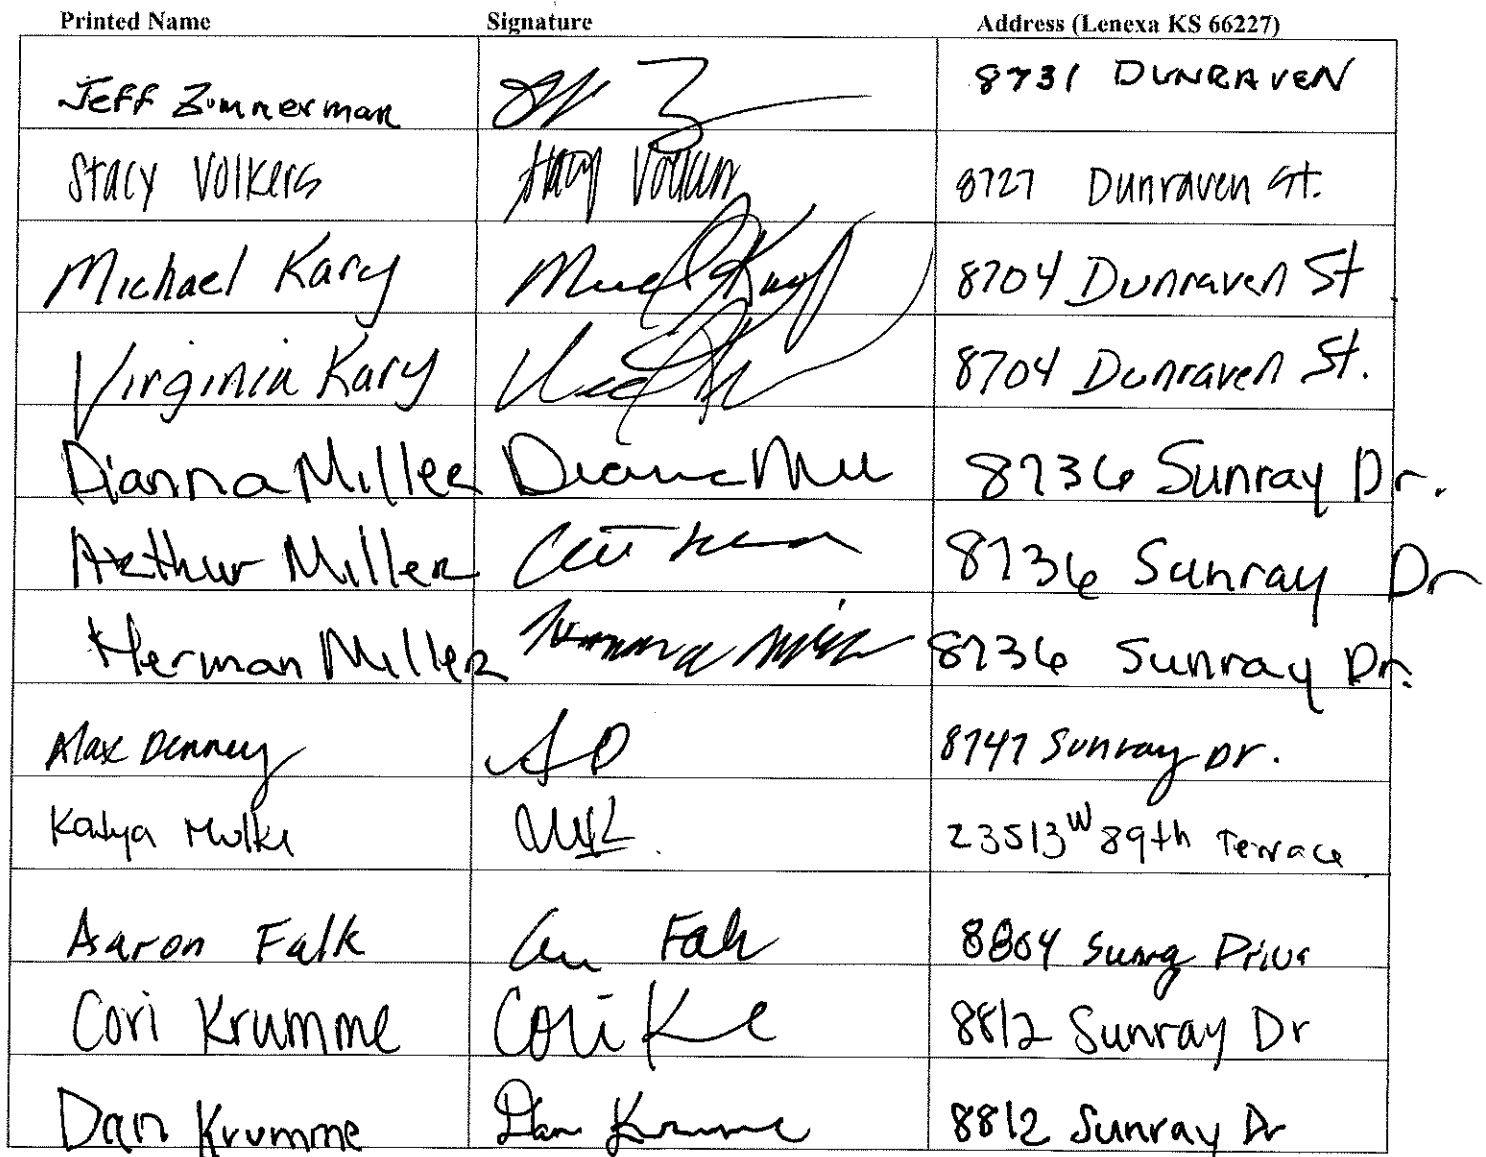 Printed Name Signature Address (Lenexa KS 66227)
Jeff Zimmerman 8731 DUNRAVEN
Stacy Volkers Stacy Volkers 8727 Dunraven St.
Michael Kary 8704 Dunraven St
Virginia Kary 8704 Dunraven St.
Dianna Miller 8736 Sunray Dr.
Arthur Miller 8736 Sunray Dr
Herman Miller 8736 Sunray Dr.
Alax Denney AD 8747 Sunray Dr.
Katya 23513 W 89th Terrace
Aaron Falk Falk 8804 Drive
Cori Krumme Cori 8812 Sunray Dr
Dan Krumme Dan Krumme 8812 Sunray Dr